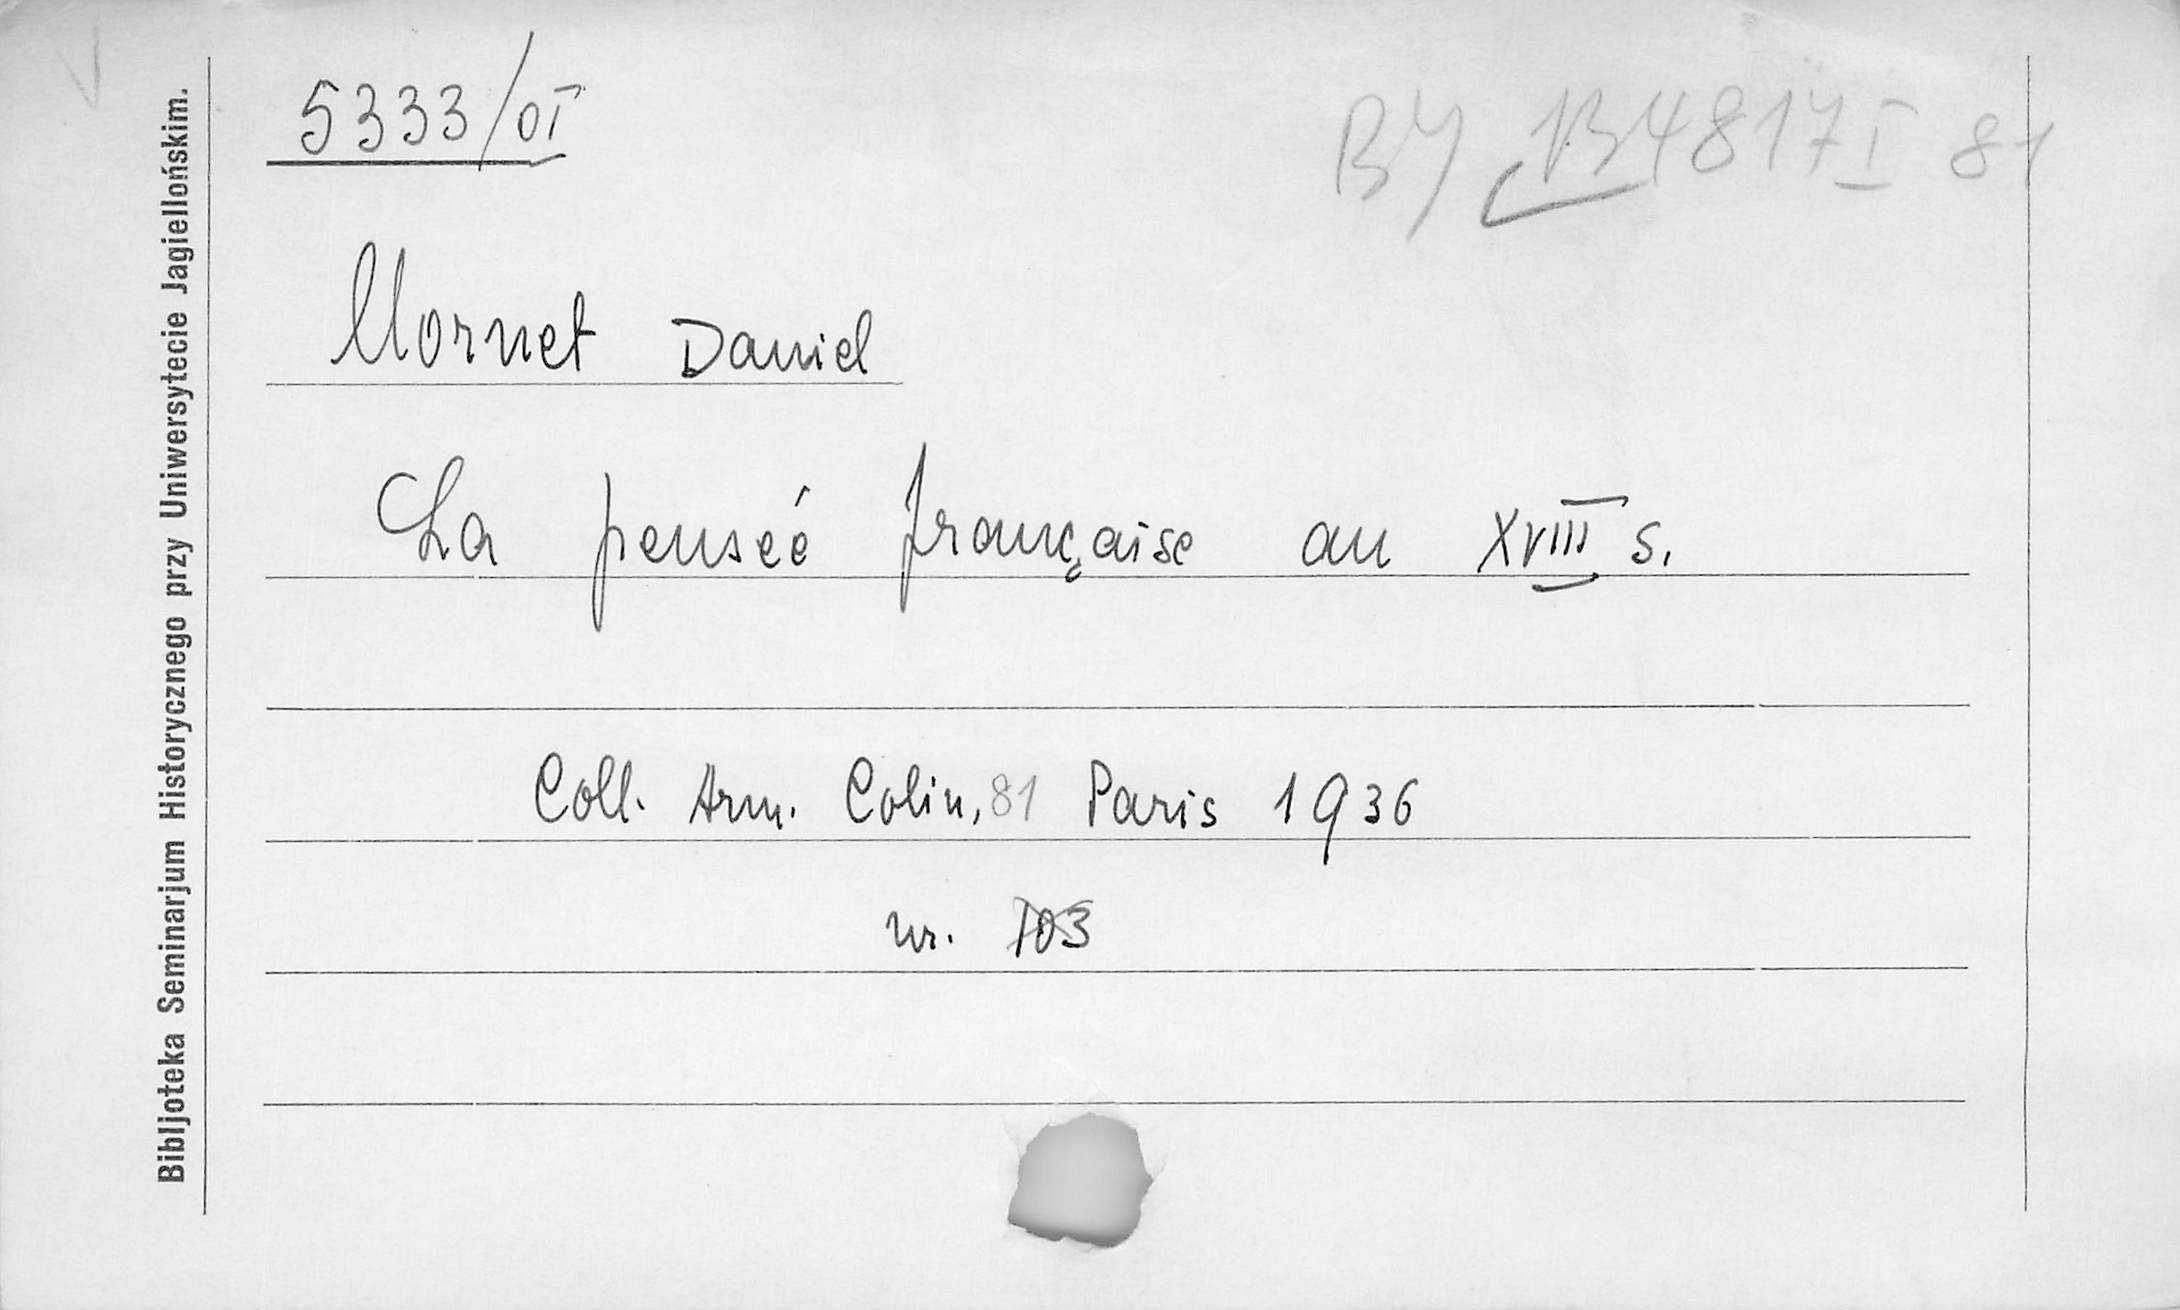 5333/oI
BJ B4817 I 81
Mornet Daniel
La penseé française au XVIII s.
Coll. Arm. Colin, 81 Paris 1936
nr. 103
Bibljoteka Seminarjum Historycznego przy Uniwersytecie Jagiellońskim.